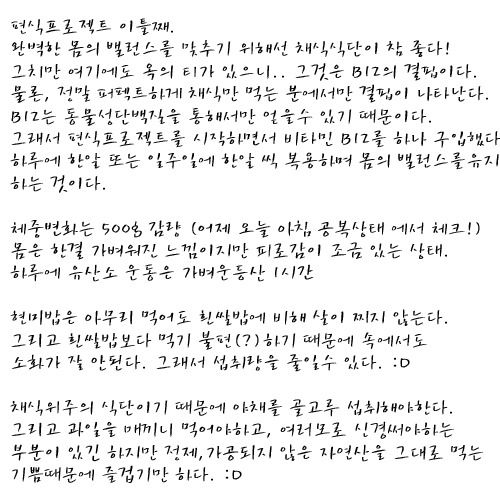 편식프로젝트 이틀째.
완벽한 몸의 밸런스를 맞추기 위해선 채식식단이 참 좋다!
그치만 여기에도 옥의 티가 있으니.. 그것은 B12의 결핍이다.
물론, 정말 퍼펙트하게 채식만 먹는 분에서만 결핍이 나타난다.
B12는 동물성단백질을 통해서만 얻을수 있기 때문이다.
그래서 편식프로젝트를 시작하면서 비타민 B12를 하나 구입했다
하루에 한알 또는 일주일에 한알 씩 복용하며 몸의 밸런스를유지
하는 것이다.
체중변화는 500g 감량 (어제 오늘 아침 공복상태 에서 체크!)
몸은 한결 가벼워진 느낌이지만 피로감이 조금 있는 상태.
하루에 유산소 운동은 가벼운등산 1시간
현미밥은 아무리 먹어도 흰쌀밥에 비해 살이 찌지 않는다.
그리고 흰쌀밥보다 먹기 불편(?)하기 때문에 속에서도
소화가 잘 안된다. 그래서 섭취량을 줄일수 있다. :D
채식위주의 식단이기 때문에 야채를 골고루 섭취해야한다.
그리고 과일을 매끼니 먹어야하고, 여러모로 신경써야하는
부분이 있긴 하지만 정제,가공되지 않은 자연산을 그대로 먹는
기쁨때문에 즐겁기만 하다. :D